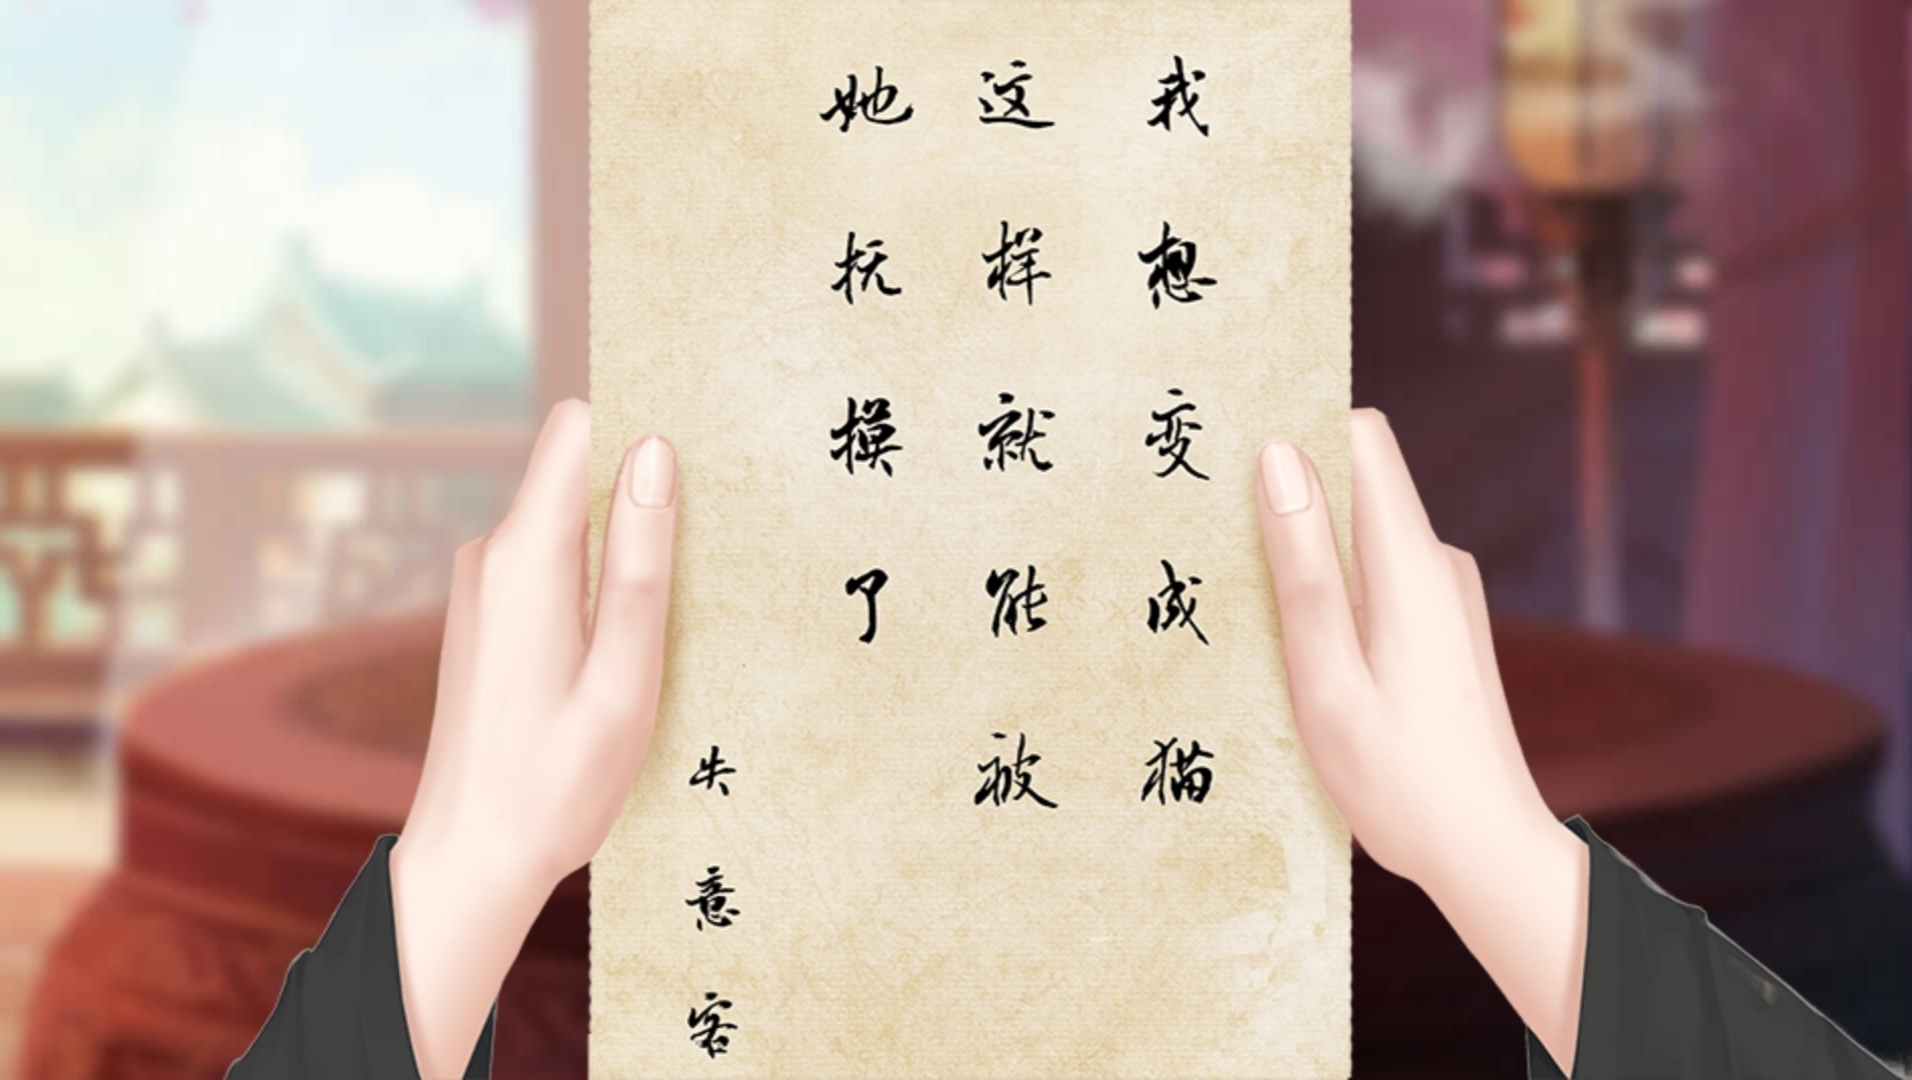 我想变成猫
这样就能被
她抚摸了
失意客